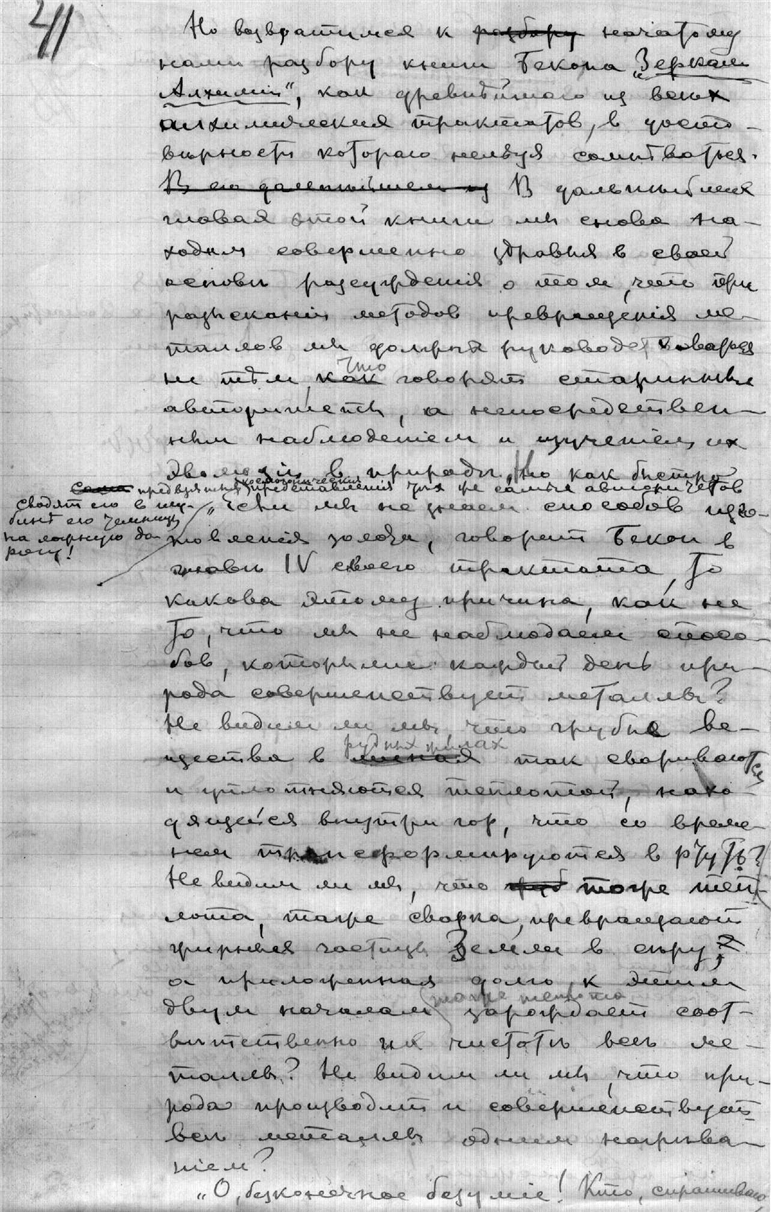 41
Но возвратимся к разбору начатому
нами разбору книги Бекона „Зеркало
Алхиміи“, как древнѣйшаго из всѣхъ
алхимическихъ трактатов, в досто-
вѣрности котораго нельзя сомнѣваться.
В его дальнѣйшем В дальнѣйших
главах этой книги мы снова на-
ходим совершенно здравыя в своей
основѣ разсужденія о том, что при
разысканіи методов превращенія ме-
таллов мы должны руководствоваться
не тѣм, как что говорят старинные
авторитеты, а непосредствен-
ным наблюденіем и изученіем их
эволюціи в природѣ. Но как быстро
предвзятыя космологическія представленія тѣх же самых авторитетов
сводят его в глу-
бину его
на ложную до-
рогу!
„Если мы не знаем способов изго-
товленія золота, говорит Бекон в
главѣ IV своего трактата, то
какова этому причина, как не
то, что мы не наблюдаем спосо-
бов, которыми каждый день при-
рода совершенствует металлы?
Не видим ли мы, что грубыя ве-
щества в рудных жилах так свариваются
и уплотняются теплотой, нахо-
дящейся внутри гор, что со време-
нем трансформируются в ртуть?
Не видим ли мы, что таже теп-
лота, таже сварка, превращают
жирныя частицы Земли в сѣру,
а приложенная долго к этим
двум началам таже теплота зарождает соот-
вѣтственно их чистотѣ всѣ ме-
таллы? Не видим ли мы, что при-
рода производит и совершенствует
всѣ металлы одним нагрѣва-
ніем?
„О, безконечное безуміе! Кто, спрашиваю,